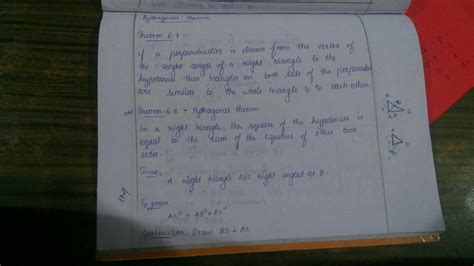 Pythagoras Theorem
Theorem 6.7
If a perpendicular is drawn from the vertex of
the right angle of a right triangle to the
hypotenuse then triangles on both side of the perpendicular
are similar to the whole triangle & to each other.
Theorem 6.8 Pythagoras theorem
In a right triangle, the square of the hypotenuse is
equal to the sum of the squares of other two
sides.
Given, A right triangle ABC right angled at B.
To prove,
AC² = AB² + BC²
Construction, Draw BD ⊥ AC